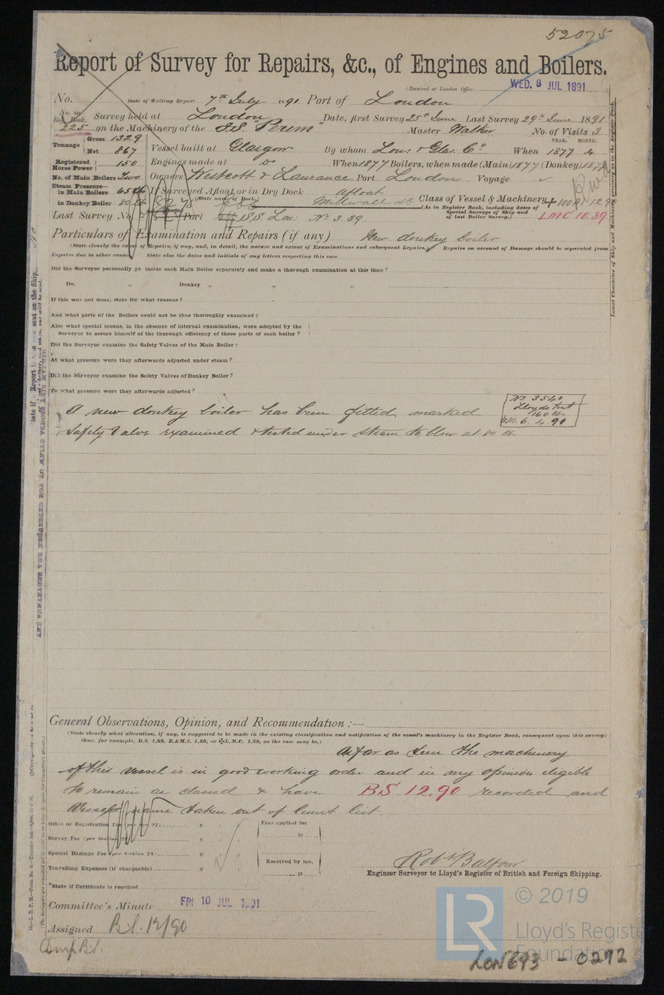 52075
Report of Survey for Repairs, &c., of Engines and Boilers.
(Received at London Office
WED. 8 JUL 1891
No. Date of Writing Report 7th July 1891 Port of London
No. in Reg. Book. Survey held at London Date, first Survey 25th June Last Survey 29th June 1891
225 on the Machinery of the S.S. "Perim" Master Walker No. of Visits 3
Tonnage Gross 1329 Net 867 Vessel built at Glasgow By whom Lon. & Glas. Co. When 1877 4
YEAR. MONTH.
Registered Horse Power 150 Engines made at Do When 1877 Boilers, when made (Main) 1877 (Donkey) 1877
No. of Main Boilers Two Owners Westcott & Laurance Port London Voyage
Steam Pressure in Main Boilers 65 lb If Surveyed Afloat or in Dry Dock afloat
in Donkey Boiler 80 lb (State name of Dock.) Millwall Dk Class of Vessel & Machinery
(As in Register Book, including dates of Special Surveys of Ship and of last Boiler Survey.)
LMC 10.89
Last Survey No. Port Lon. No 3.59
Particulars of Examination and Repairs (if any) New donkey boiler
(State clearly the cause of Repairs, if any, and, in detail, the nature and extent of Examinations and subsequent Repairs. Repairs on account of Damage should be separated from
Repairs due to other causes. State also the dates and initials of any letters respecting this case
Did the Surveyor personally go inside each Main Boiler separately and make a thorough examination at this time?
Do. " Donkey " " "
If this was not done, state for what reasons?
And what parts of the Boilers could not be thus thoroughly examined?
Also what special means, in the absence of internal examination, were adopted by the
Surveyor to assure himself of the thorough efficiency of those parts of each boiler?
Did the Surveyor examine the Safety Valves of the Main Boiler?
At what pressure were they afterwards adjusted under steam?
Did the Surveyor examine the Safety Valves of Donkey Boiler?
To what pressure were they afterwards adjusted?
A new donkey boiler has been fitted, marked
No 3540
Lloyds Test
160 lb
6.4.90
Safety Valve examined & tested under steam to blow at 80 lb
General Observations, Opinion, and Recommendation :—
(State clearly what alteration, if any, is suggested to be made in the existing classification and notification of the vessel's machinery in the Register Book, consequent upon this survey;
thus, for example, B.S. 1,89, B.&M.S. 1,89, or L.M.C. 1,89, as the case may be.)
As far as seen the machinery
of this vessel is in good working order and in my opinion eligible
to remain as classed & have BS 12.90 recorded and
Vessels name taken out of limit list
Office or Registration Fee
Survey Fee (per Section
Special Damage Fee (per Section
Travelling Expenses (if chargeable)
Fees applied for
Received by me,
*State if Certificate is required
Robt Balfour
Engineer Surveyor to Lloyd's Register of British and Foreign Shipping.
Committee's Minute FRI 10 JUL 1891
Assigned B.S. 12/90
© 2019
LR
Lloyd's Register
Foundation
LON 693 - 0292